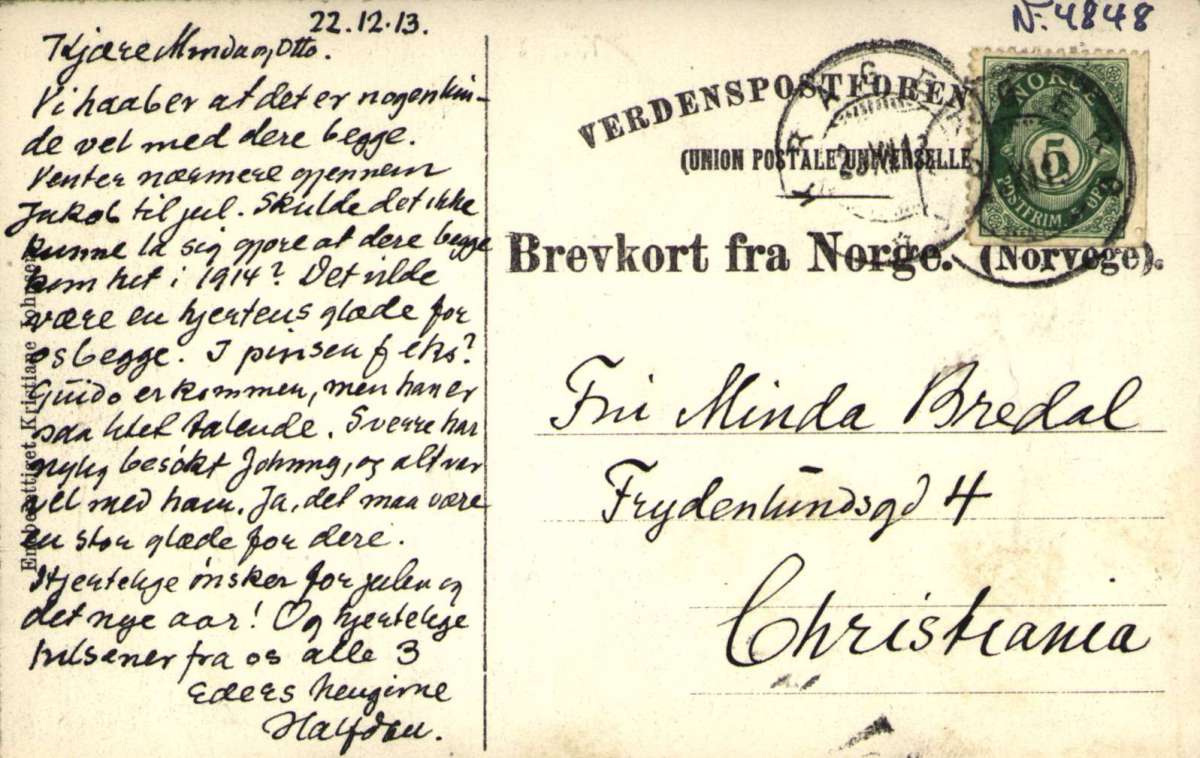 22.12.13.
Kjære Minda og Otto.
Vi haaber at det er nogenlun-
de vel med dere begge.
Venter nærmere gjennem
Jakob til jul. Skulde det ikke
kunne la sig gjøre at dere begge
kom hit i 1914? Det vilde
være en hjertens glæde for
os begge. I pinsen f eks?
Guido er kommen, men han er
saa litet talende. Sverre har
nylig besökt Johnny, og alt var
vel med ham. Ja, det maa være
en stor glæde for dere.
Hjertelige önsker for julen og
det nye aar! Og hjertelige
hilsener fra os alle 3
Eders hengivne
Halfdan.
Eneberettiget Kristiane Johnse
Nr. 4848
VERDENSPOSTFOREN
(UNION POSTALE UNIVERSELLE
Brevkort fra Norge. (Norvége).
NORGE
5
POSTFRIM
KRAGERØ
Frü Minda Bredal
Frydenlündsgd 4
Christiania